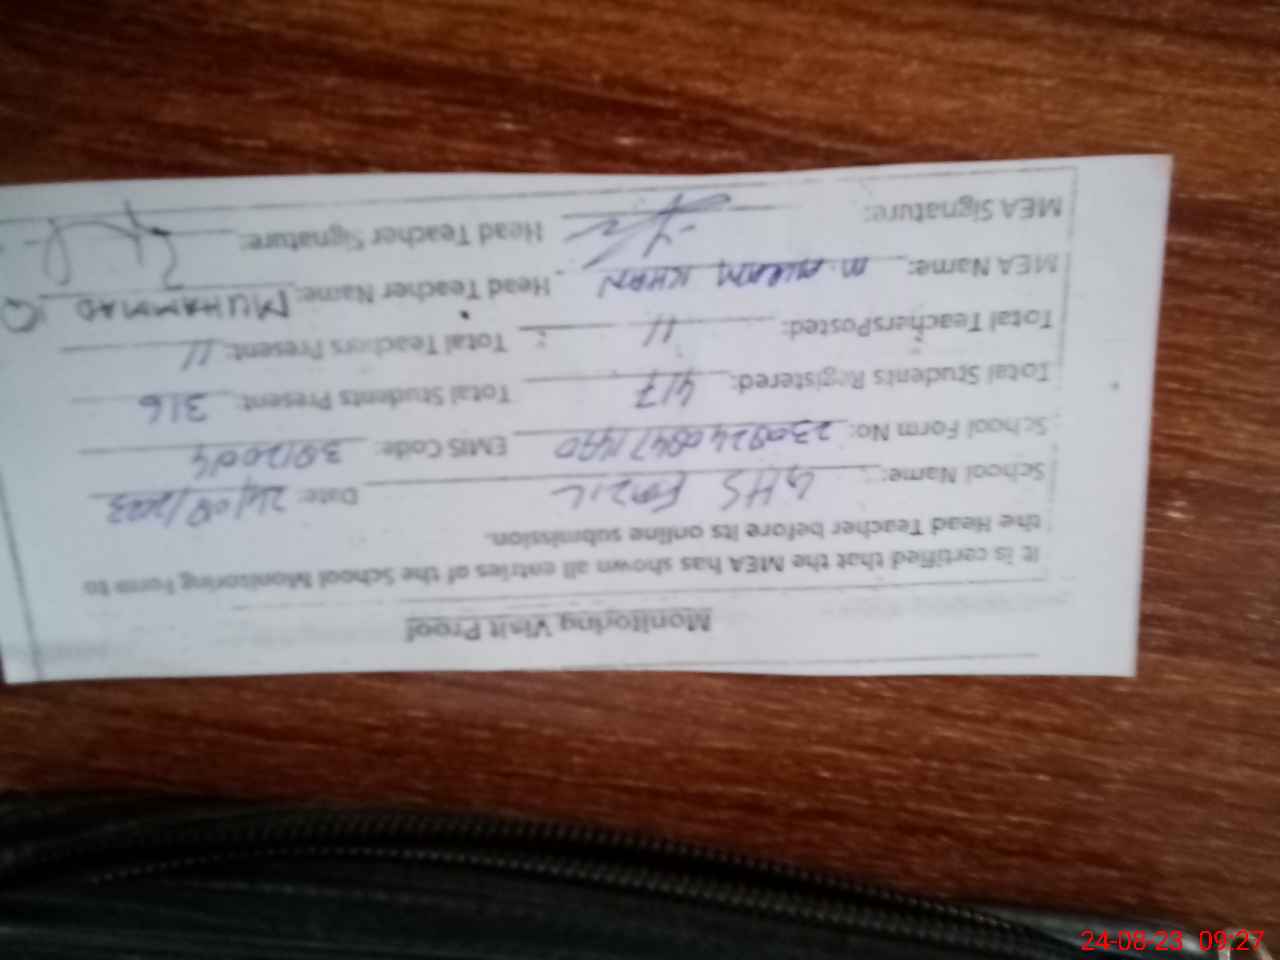 Monitoring Visit Proof
It is certified that the MEA has shown all entries of the School Monitoring Form to
the Head Teacher before its online submission.
School Name: GHS Date: 24/08/2023
School Form No: EMIS Code:
Total Students Registered: 417 Total Students Present: 316
Total TeachersPosted: 11 Total Teachers Present: 11
MEA Name: M. AKRAM KHAN Head Teacher Name: MUHAMMAD
MEA Signature: Head Teacher Signature:
24-08-23 09:27